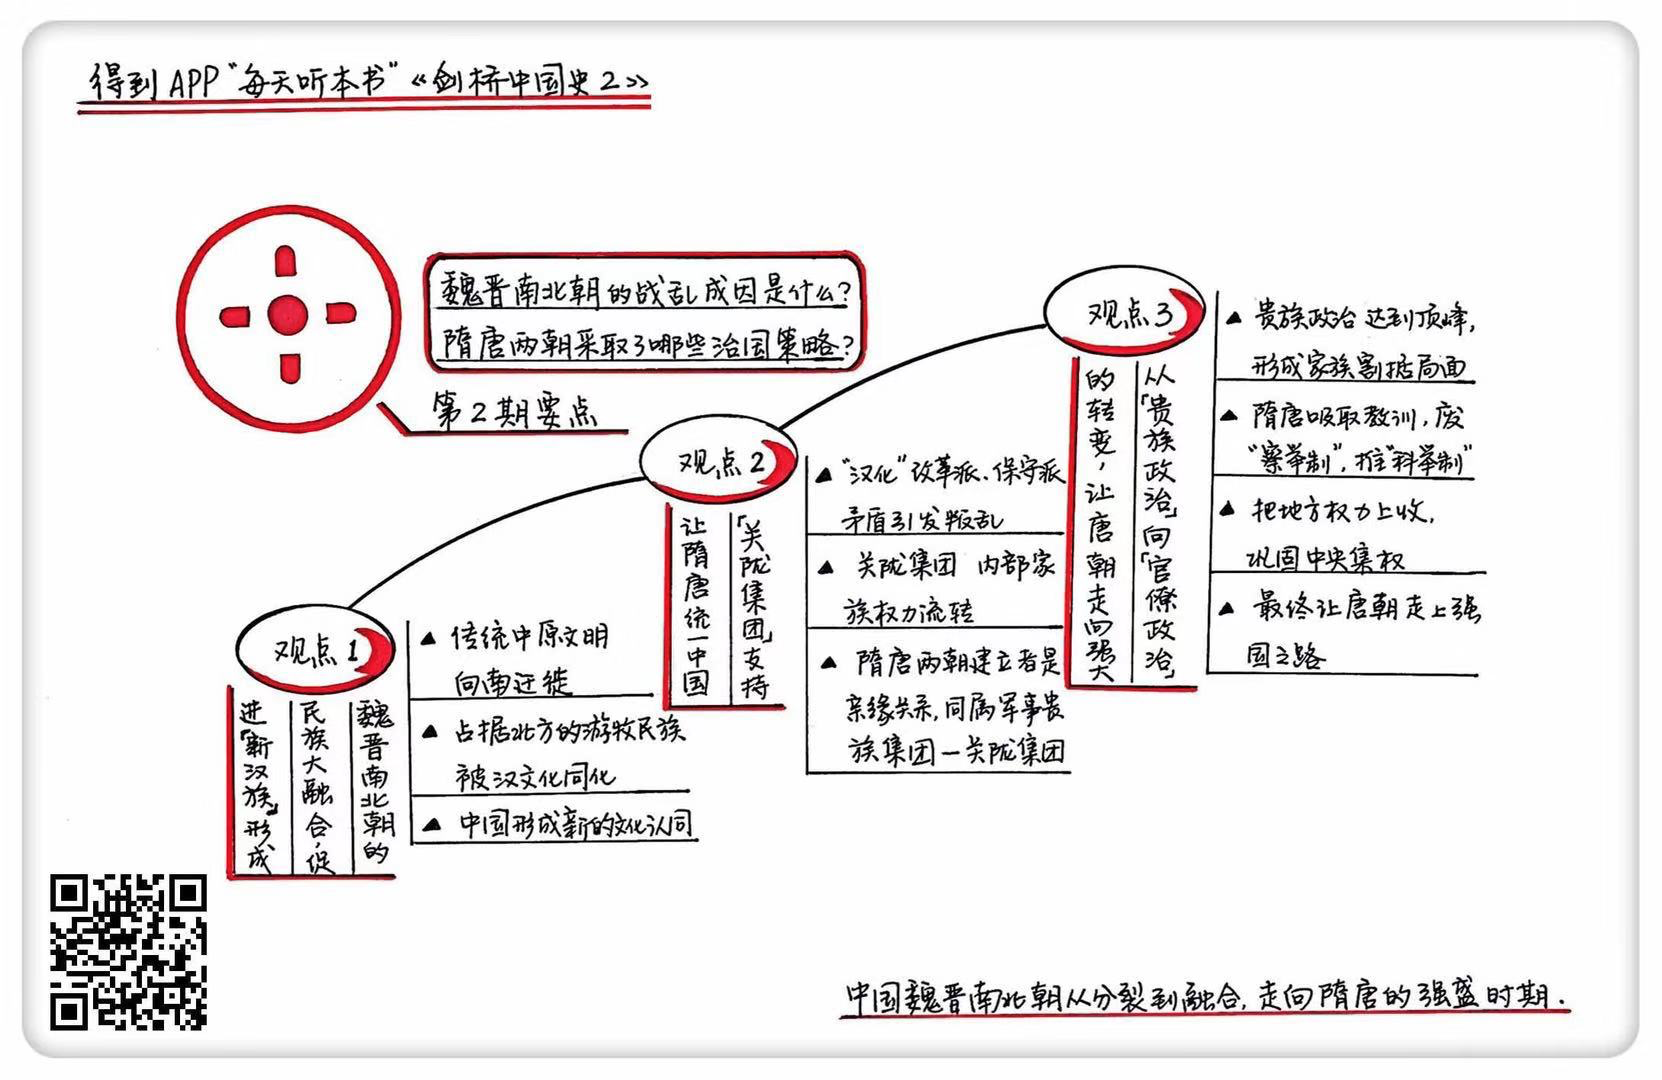 得到APP“每天听本书”《剑桥中国史2》
魏晋南北朝的战乱成因是什么?
隋唐两朝采取了哪些治国策略?
第2期要点
观点1
魏晋南北朝的
民族大融合,促
进「新汉族」形成
▲ 传统中原文明
向南迁徙
▲ 占据北方的游牧民族
被汉文化同化
▲ 中国形成新的文化认同
观点2
「关陇集团」支持
让隋唐统一中国
▲ “汉化”改革派、保守派
矛盾引发叛乱
▲ 关陇集团 内部家
族权力流转
▲ 隋唐两朝建立者是
亲缘关系,同属军事贵
族集团—关陇集团
观点3
从「贵族政治」向「官僚政治」
的转变,让唐朝走向强大
▲ 贵族政治 达到顶峰,
形成家族割据局面
▲ 隋唐吸取教训,废
“察举制”,推“科举制”
▲ 把地方权力上收,
巩固中央集权
▲ 最终让唐朝走上强
国之路
中国魏晋南北朝从分裂到融合,走向隋唐的强盛时期.